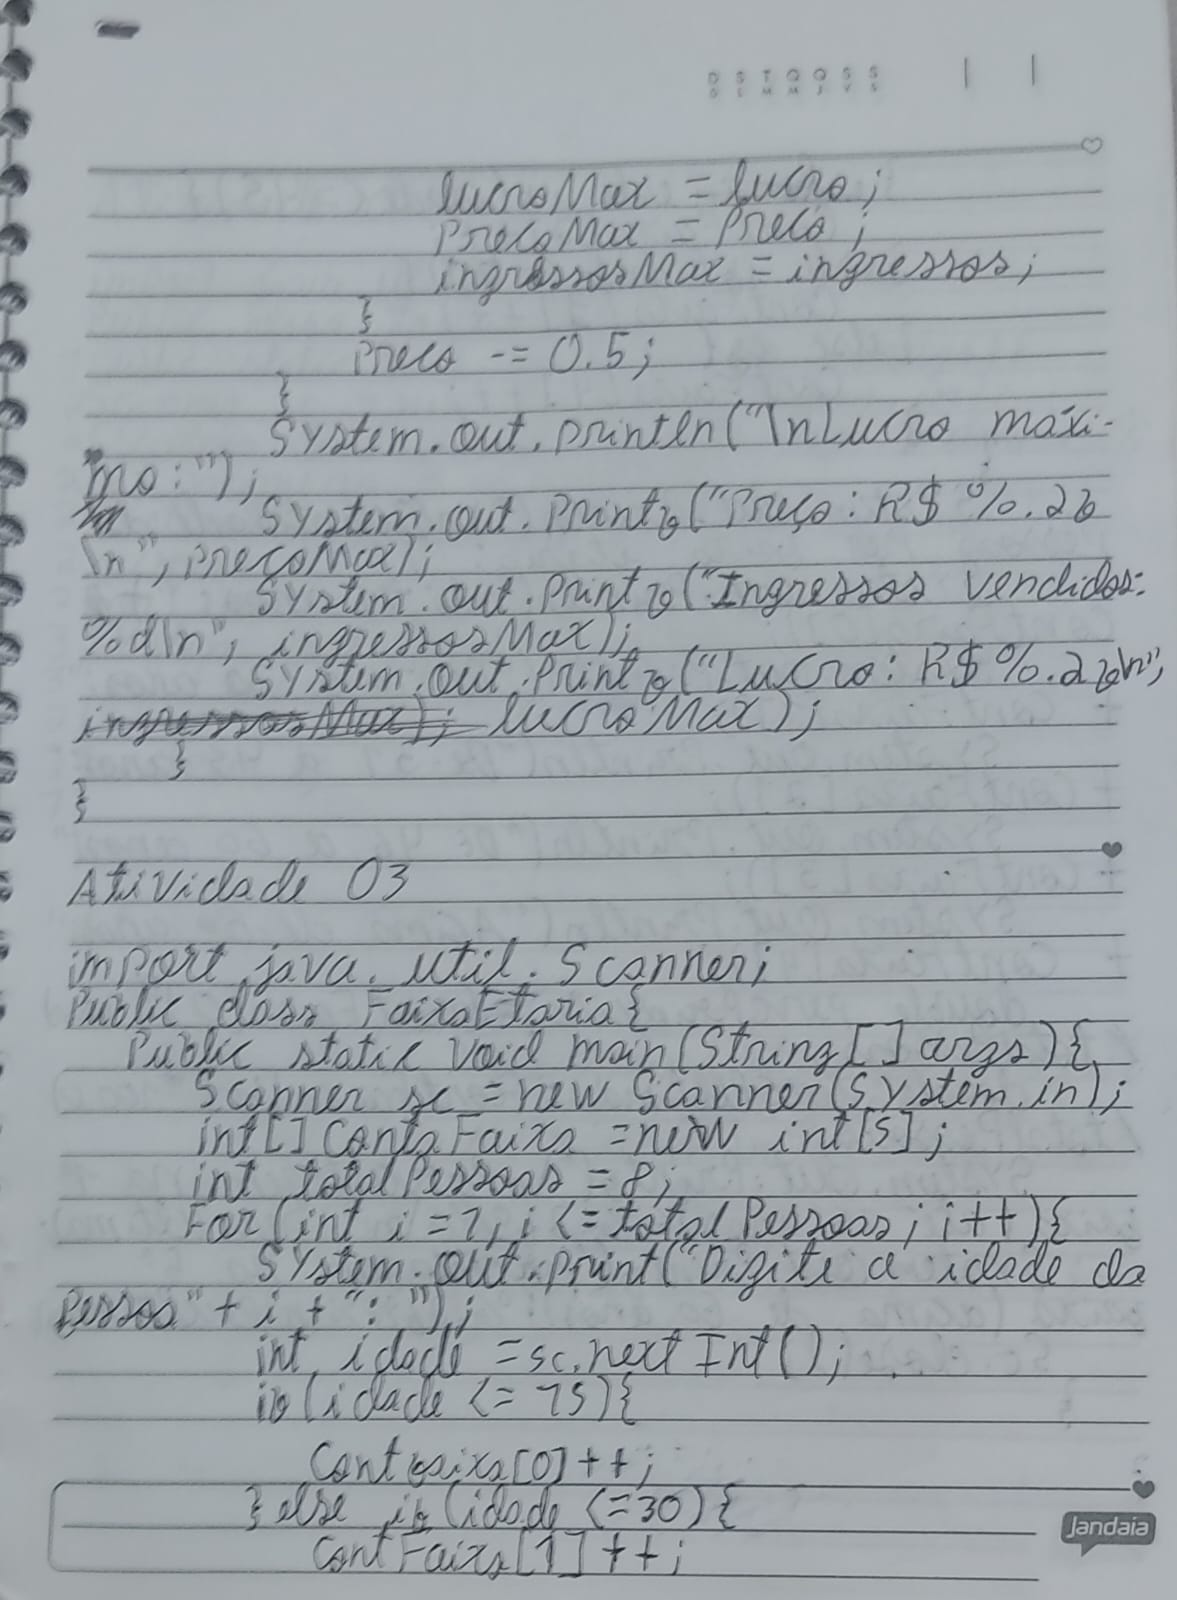 D S T Q Q S S
D L M M J V S
lucroMax = lucro;
PrecoMax = Preco;
ingressosMax = ingressos;
}
Preco -= 0.5;
}
System.out.println("\nLucro máxi-
mo:");
System.out.Printf("Preço: R$ %.2f
\n", precoMax);
System.out.Printf("Ingressos vendidos:
%d\n", ingressosMax);
System.out.Printf("Lucro: R$ %.2f\n",
ingressosMax); lucroMax);
}
}
Atividade 03
import java.util.Scanner;
Public class FaixaEtaria{
Public static void main(String[] args){
Scanner sc = new Scanner(System.in);
int[] ContaFaixa = new int[5];
int totalPessoas = 8;
For(int i = 1, i <= totalPessoas; i++){
System.out.print("Digite a idade da
Pessoa" + i + ": ");
int idade = sc.nextInt();
if(idade <= 15){
Contfaixa[0]++;
} else if(idade <= 30){
ContFaixa[1]++;
Jandaia